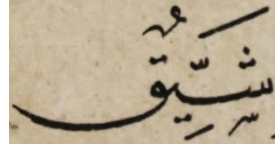 شَيِّقٌ